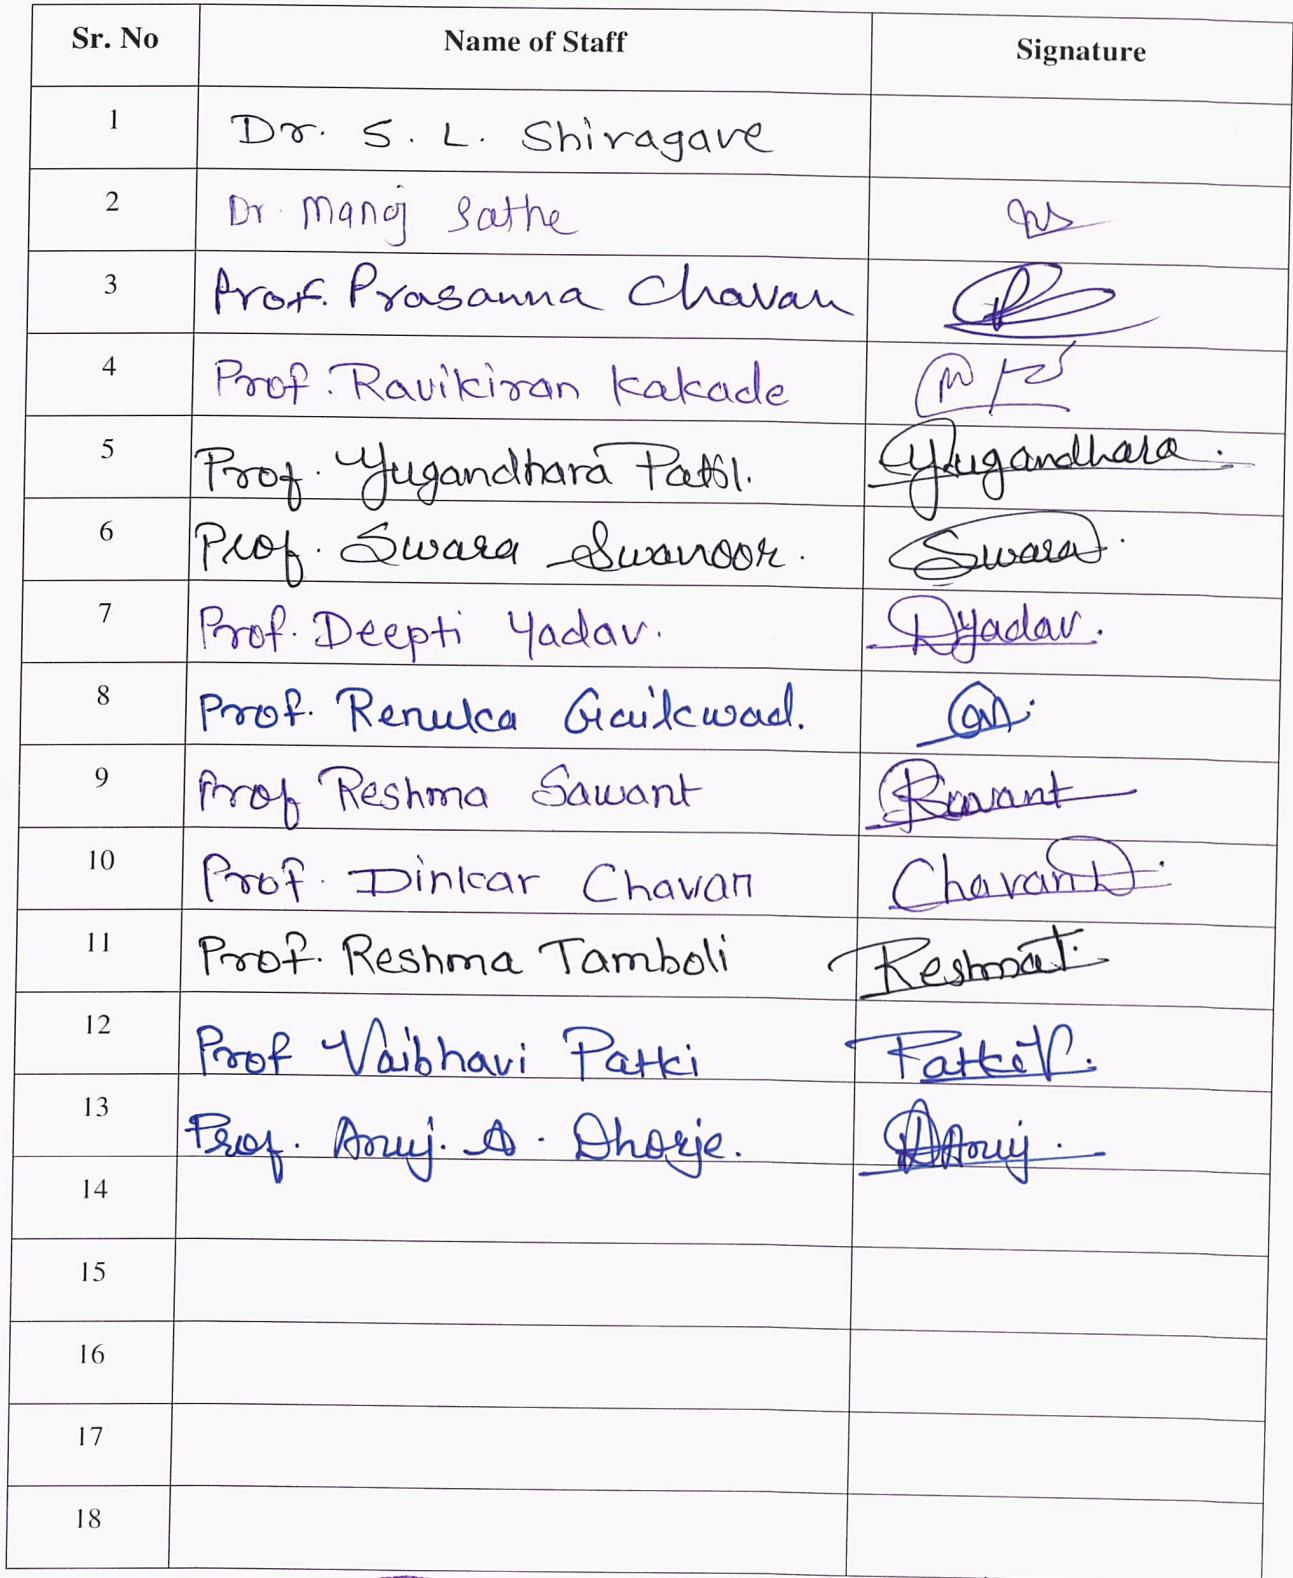 Sr. No Name of Staff Signature
1 Dr. S. L. Shiragave
2 Dr. Manoj Sathe
3 Prof. Prasanna Chavan
4 Prof. Ravikiran Kakade
5 Prof. Yugandhara Patil. Yugandhara.
6 Prof. Swara Swanoor. Swara.
7 Prof. Deepti Yadav. DYadav.
8 Prof. Renuka Gaikwad.
9 Prof Reshma Sawant RSawant
10 Prof. Dinkar Chavan Chavan D.
11 Prof. Reshma Tamboli Reshma T.
12 Prof Vaibhavi Patki Patki V.
13 Prof. Anuj. A. Dhorje. Anuj.
14
15
16
17
18